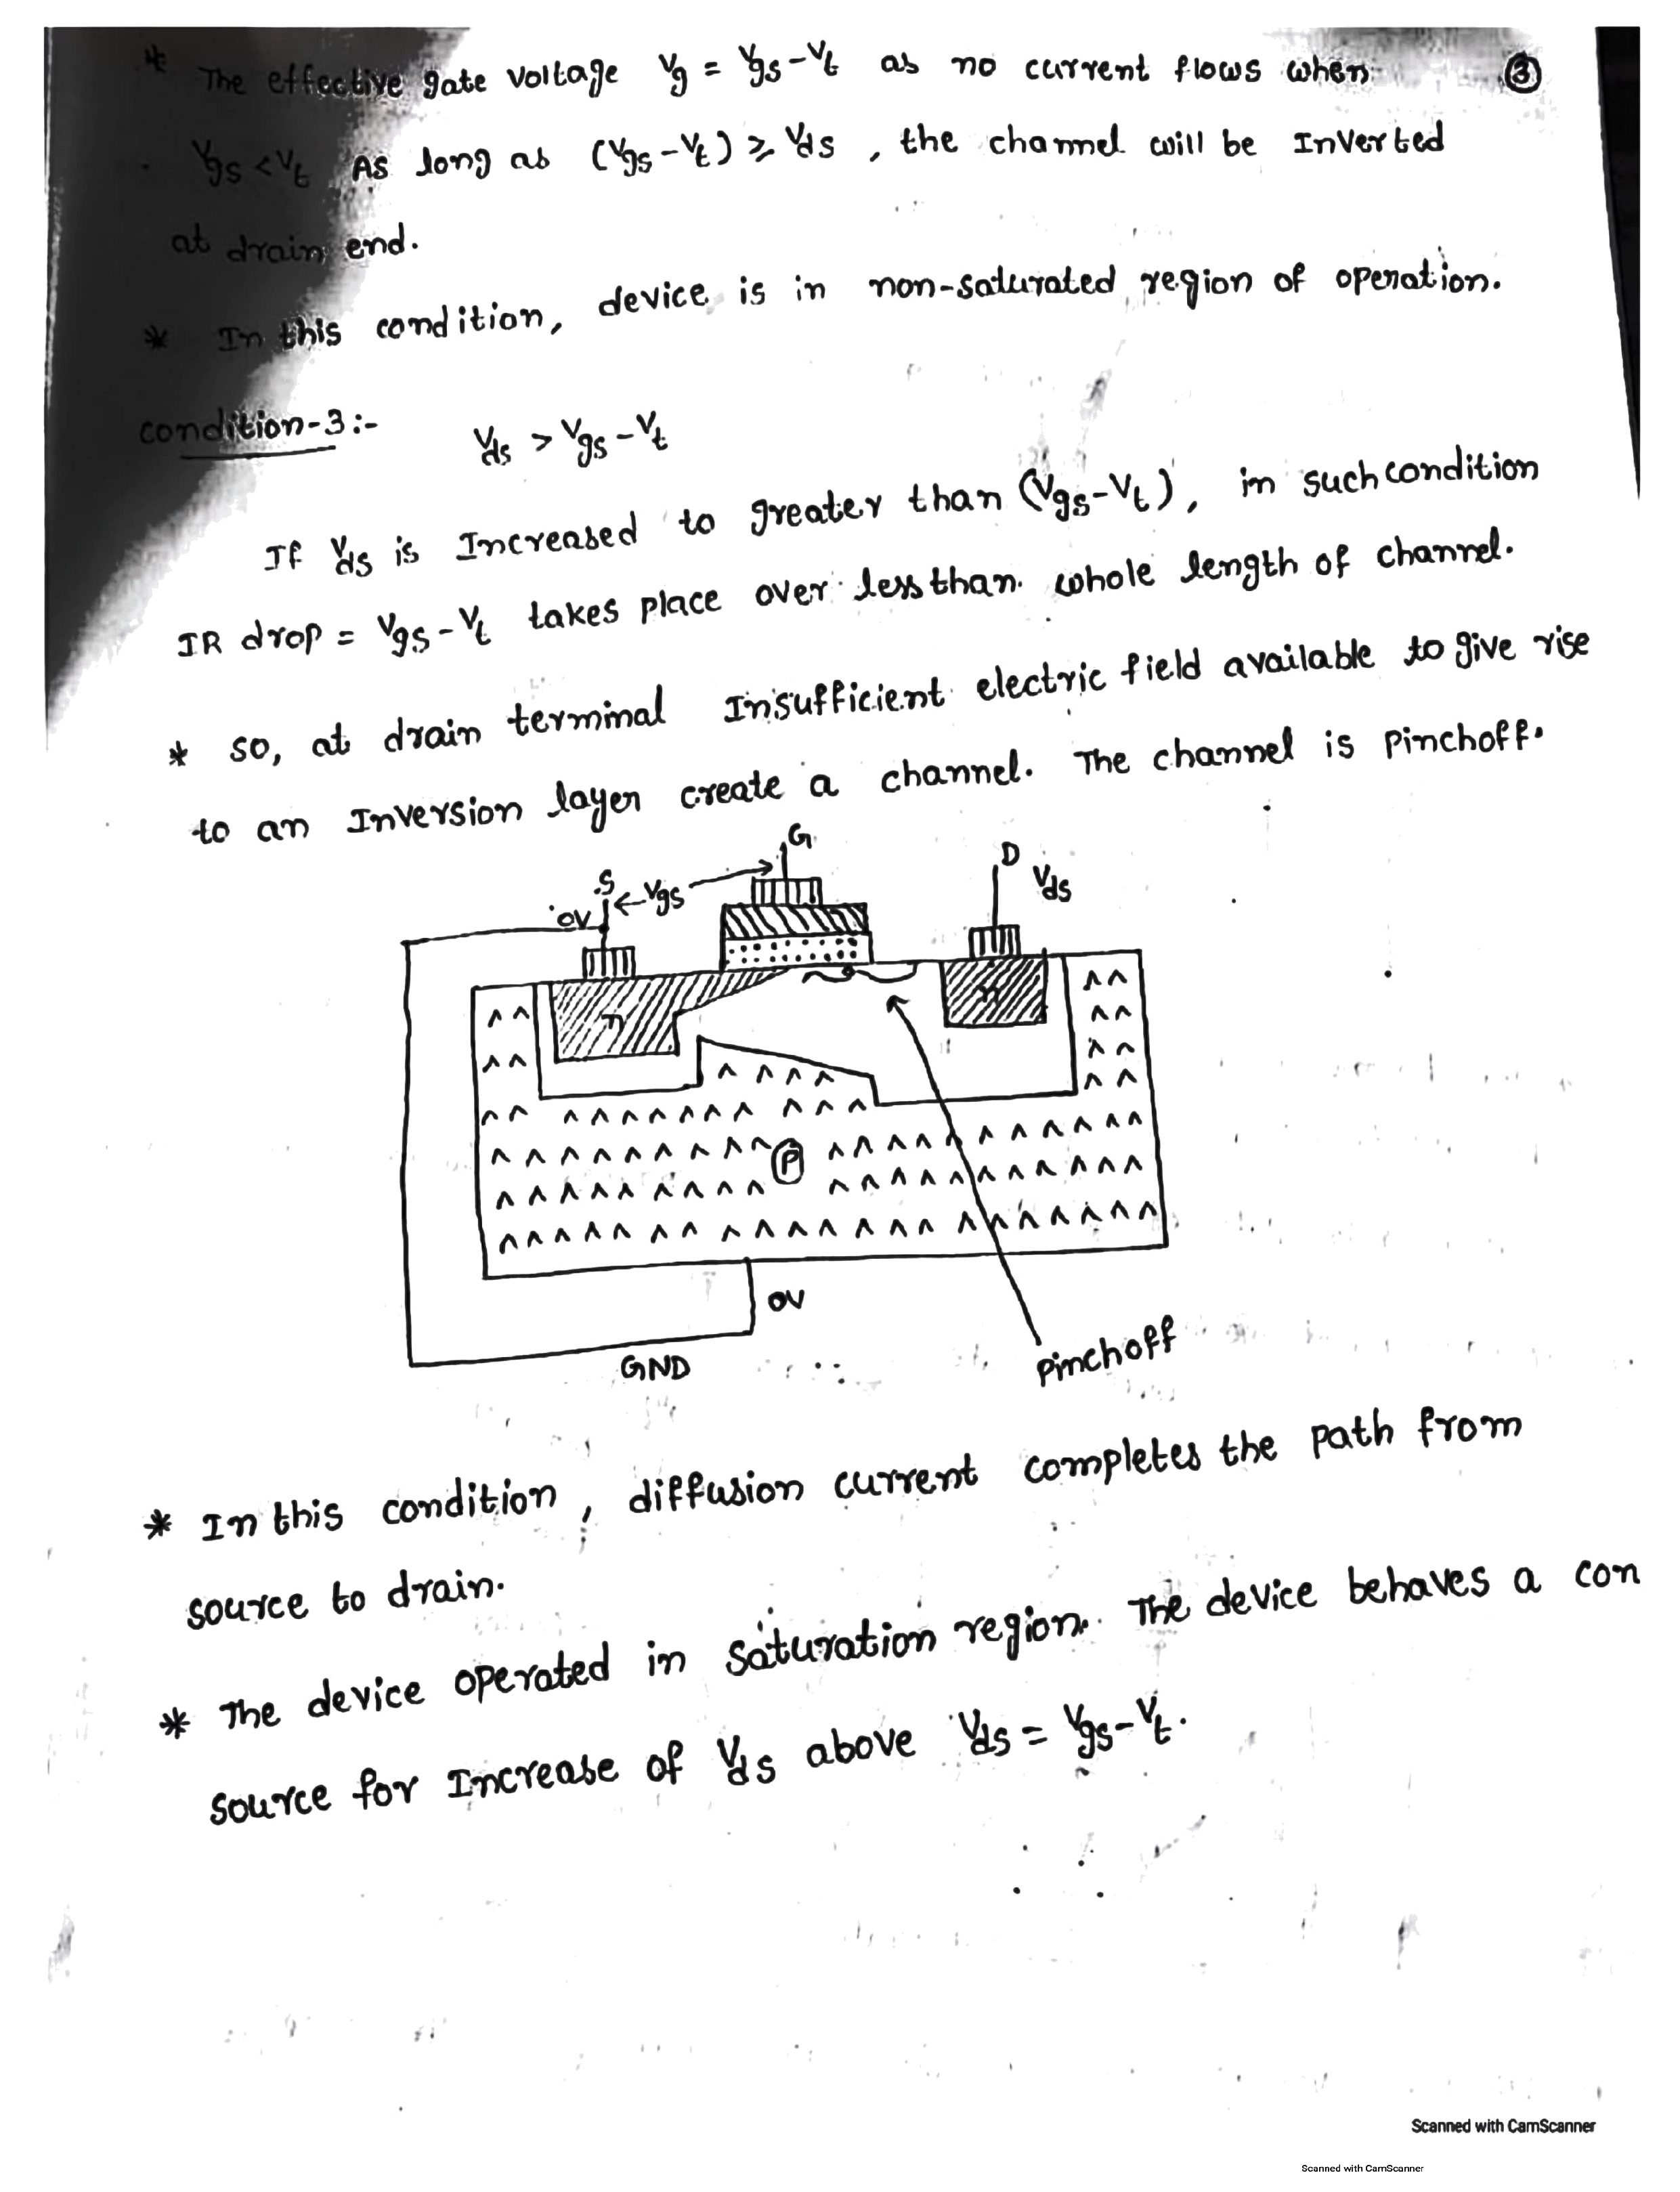 * The effective gate voltage Vg = Vgs - Vt as no current flows when ③
Vgs < Vt As long as (Vgs - Vt) ≥ Vds , the channel will be Inverted
at drain end.
* In this condition, device is in non-saturated region of operation.
condition-3:- Vds > Vgs - Vt
If Vds is Increased to greater than (Vgs - Vt), in such condition
IR drop = Vgs - Vt takes place over less than whole length of channel.
* so, at drain terminal Insufficient electric field available to give rise
to an Inversion layer create a channel. The channel is Pinchoff.
G
S ← Vgs →
D Vds
0V
n
n
P
0V
GND
Pinchoff
* In this condition, diffusion current completes the path from
source to drain.
* The device operated in saturation region. The device behaves a con
source for Increase of Vds above Vds = Vgs - Vt.
Scanned with CamScanner
Scanned with CamScanner